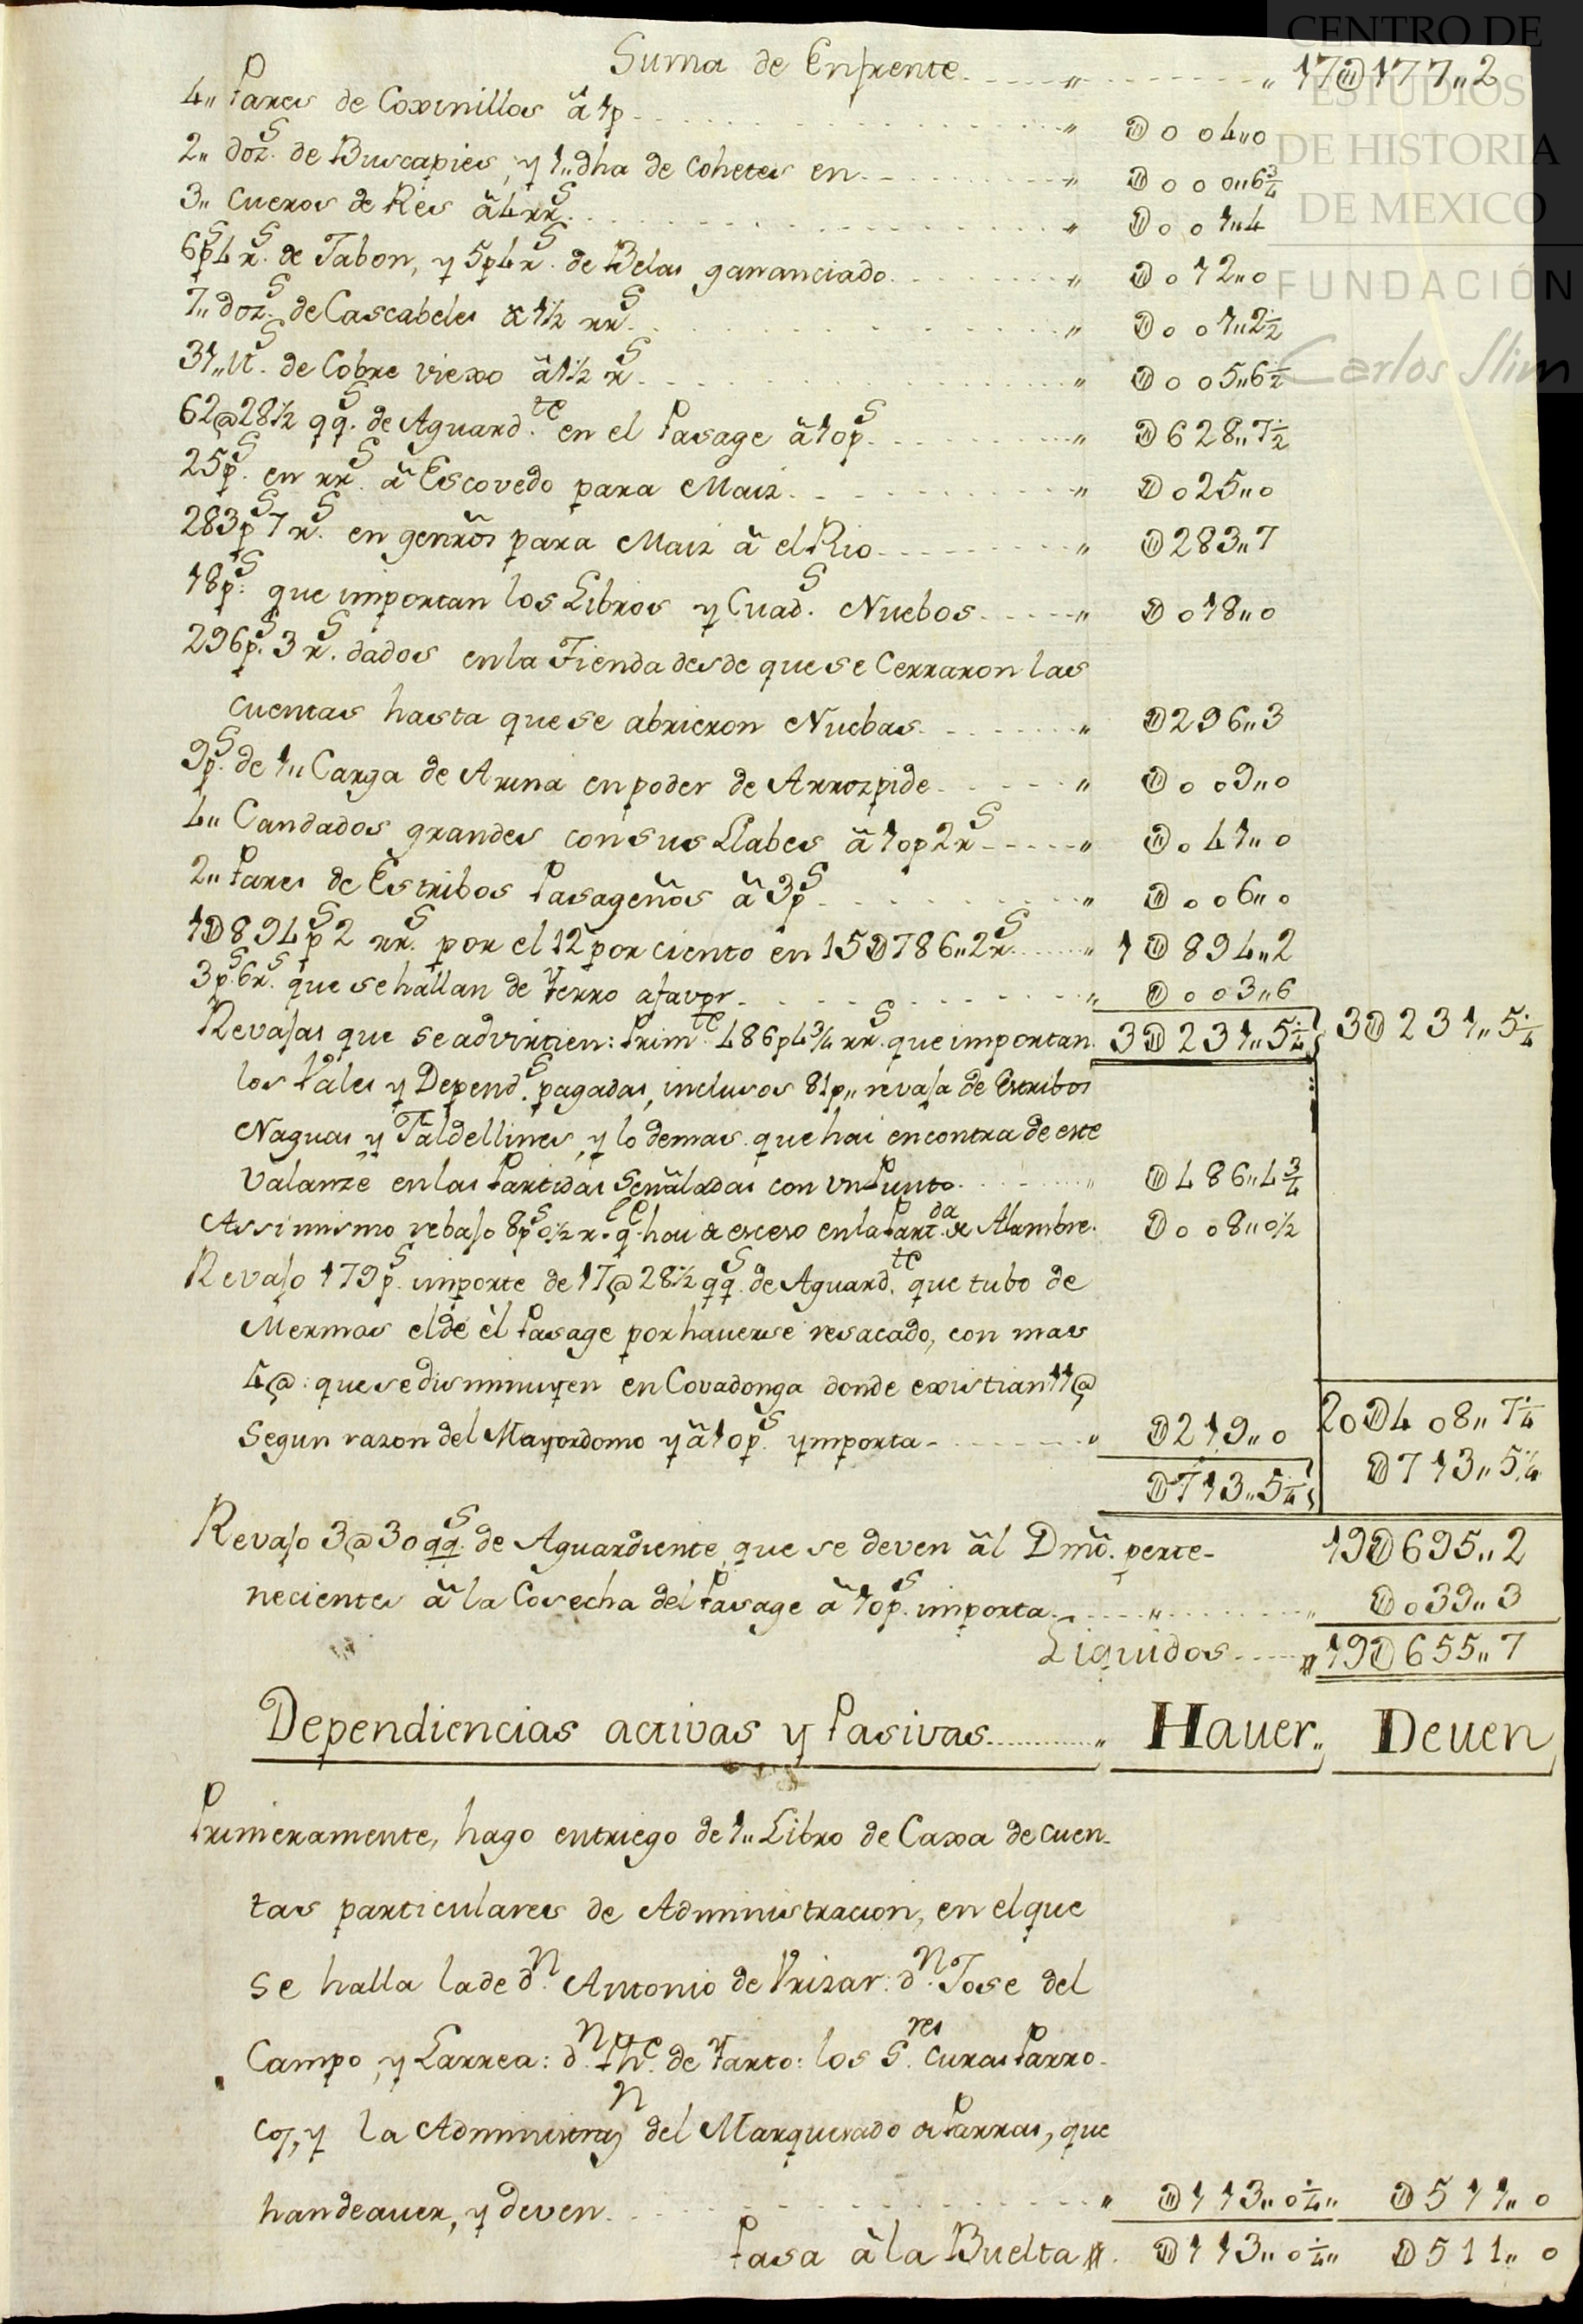 CENTRO DE
ESTUDIOS
DE HISTORIA
DE MEXICO
FUNDACIÓN
Carlos Slim
Suma de Enfrente " " 17@177"2
4" Pares de Coxinillos â 1p " @004"0
2" dozs. de Buscapies, y 1" dha de Cohetes en " @000"6¾
3" Cueros de Res â 4 rrs. " @001"4
6ps4rs. de Jabon, y 5p4rs. de Belas gananciado " @012"0
7" dozs. de Cascabeles a 1½ rrs. " @001"2½
31" lls. de Cobre viexo â 1½ rs. " @005"6½
62@28½ qqs. de Aguardte. en el Pasage â 10ps. " @628"7½
25ps. en rrs. â Escovedo para Maiz " @025"0
283ps7rs. en genros para Maiz â el Rio " @283"7
18ps: que importan los Libros y Cuads. Nuebos " @018"0
296ps.3rs. dados en la Tienda desde que se Cerraron las
cuentas hasta que se abrieron Nuebas " @296"3
9ps. de 1" Carga de Arina en poder de Arrozpide " @009"0
4" Candados grandes con sus Llabes â 10p2rs " @041"0
2" Pares de Estribos Pasageños â 3ps " @006"0
1@894ps2 rrs. por el 12 por ciento en 15@786"2rs " 1@894"2
3ps.6rs. que se hallan de Yerro a favor " @003"6
Revajas que se advirtien: Primte. 486p4¾ rrs. que importan 3@231"5¼ 3@231"5¼
los Vales y Depends. pagadas, inclusos 81p" revaja de Estribos
Naguas y Faldellines, y lo demas que hai en contra de este
Valanze en las Partidas Señaladas con un Punto " @486"4¾
Assi mismo rebajo 8ps0½ r. qe. hai de exceso en la Partda. de Alambre. @008"0½
Revajo 179ps. importe de 17@28½ qqs. de Aguardte. que tubo de
Mermas el de èl Pasage por hauerse resacado, con mas
4@: que se disminuyen en Covadonga donde existian 11@
Segun razon del Mayordomo y â 10ps. ymporta " @219"0 20@408"7¼
@713"5¼ @713"5¼
Revajo 3@30 qqs. de Aguardiente que se deven âl Dmo. perte- 19@695"2
necientes â la Cosecha del Pasage â 10ps. importa " " @039"3
Liquidos 19@655"7
Dependiencias activas y Pasivas " Hauer" Deuen
Primeramente, hago entriego de 1" Libro de Caxa de cuen-
tas particulares de Administracion, en el que
se halla la de dn. Antonio de Vrizar: dn. Jose del
Campo, y Larrea: dn. Phe. de Yarto: los Sres. Curas Parro-
cos, y la Administran del Marquesado de Parras, que
han de auer, y deven " @113"0¼" @511"0
Pasa â la Buelta @113"0¼" @511"0